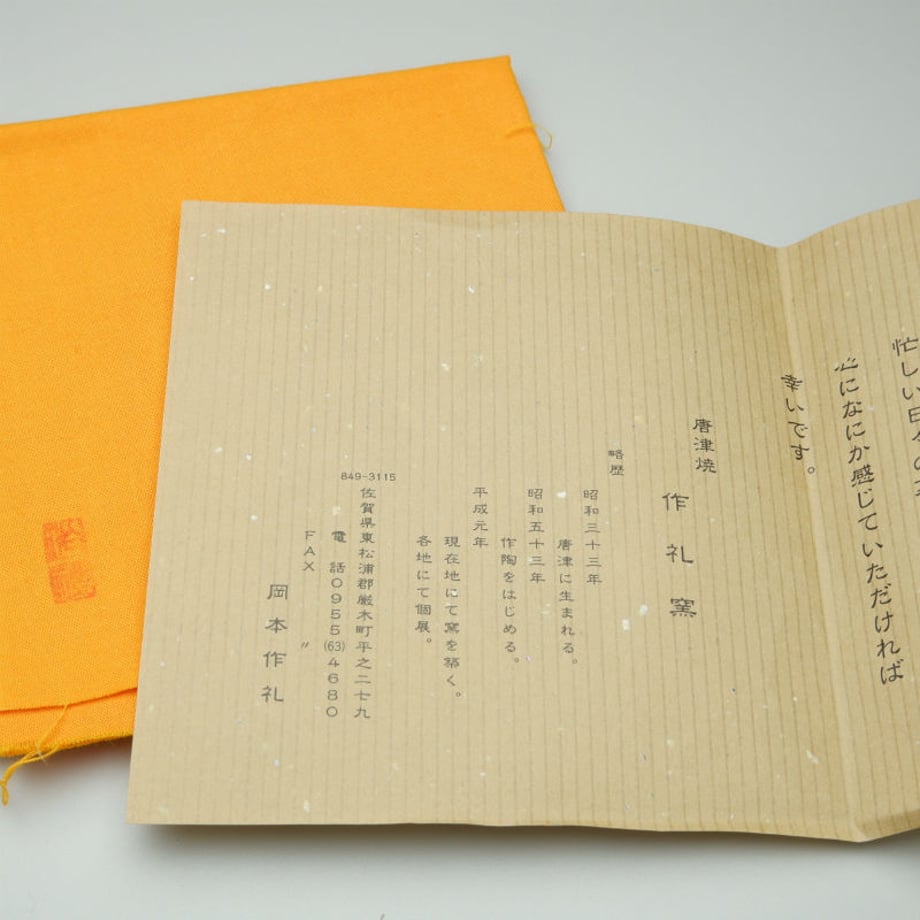 忙しい日々の
心になにか感じていただければ
幸いです。
唐津焼
作礼窯
略歴
昭和三十三年
唐津に生まれる。
昭和五十三年
作陶をはじめる。
平成元年
現在地にて窯を築く。
各地にて個展。
849-3115
佐賀県東松浦郡厳木町平之二七九
電話0955(63)4680
FAX 〃
岡本作礼